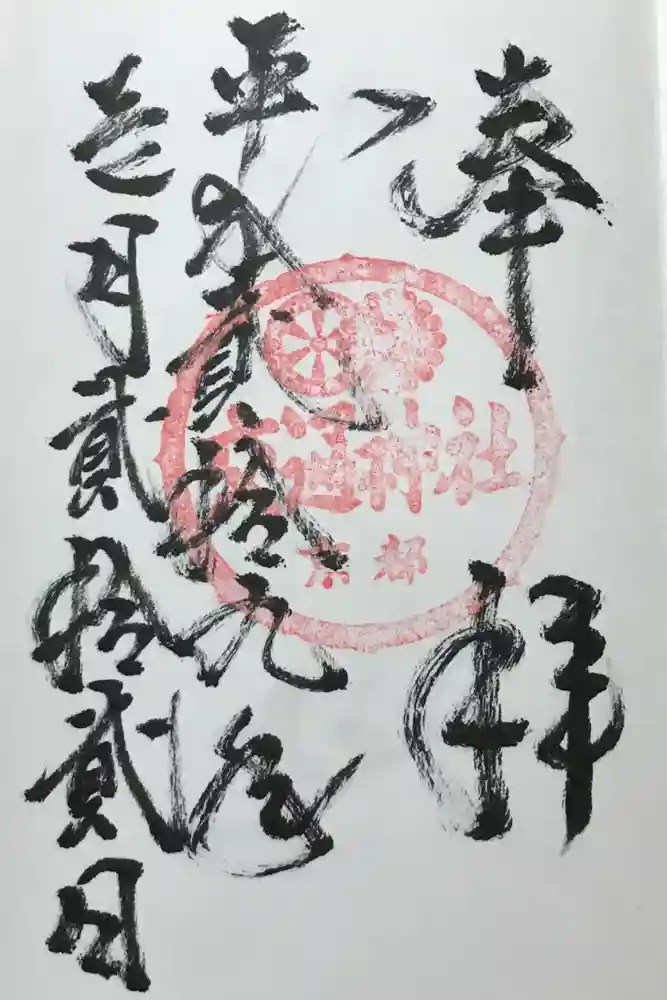 奉拝
平成貳拾九
壱月貳拾貳日
神社
京都